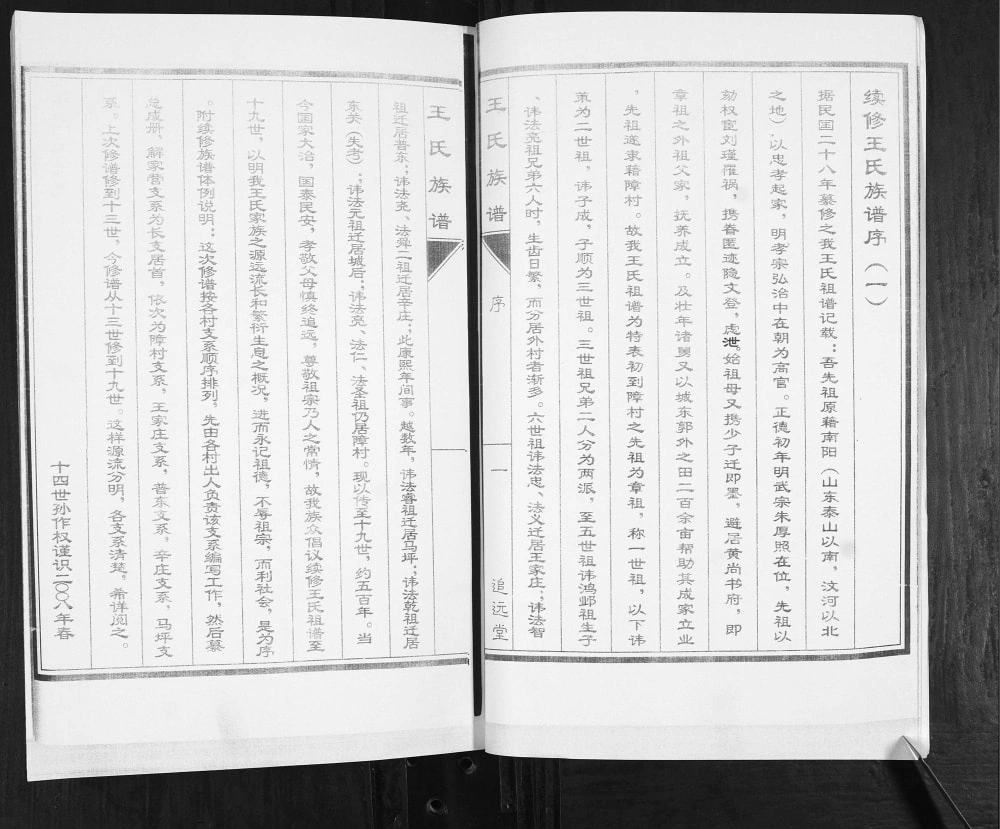 续修王氏族谱序（一）
据民国二十八年纂修之我王氏祖谱记载：吾先祖原藉南阳（山东泰山以南，汶河以北
之地），以忠孝起家，明孝宗弘治中在朝为高官。正德初年明武宗朱厚照在位，先祖以
劾权宦刘瑾罹祸，携眷匿迹隐文登，虑泄。始祖母又携少子迁即墨，避居黄尚书府，即
章祖之外祖父家，抚养成立。及壮年诸舅又以城东郭外之田二百余亩帮助其成家立业
，先祖遂隶藉障村。故我王氏祖谱为特表初到障村之先祖为章祖，称一世祖，以下讳
策为二世祖，讳子成，子顺为三世祖。三世祖兄弟二人分为两派，至五世祖讳鸿邺祖生子
、讳法亮祖兄弟六人时，生齿日繁，而分居外村者渐多。六世祖讳法忠、法义迁居王家庄；讳法智
王氏族谱
序
一
追远堂
王氏族谱
祖迁居普东；讳法尧、法舜二祖迁居辛庄；此康熙年间事。越数年，讳法睿祖迁居马坪；讳法乾祖迁居
东关（失考）；讳法元祖迁居城后；讳法亮、法仁、法圣祖仍居障村。现以传至十九世，约五百年。当
今国家大治，国泰民安，孝敬父母慎终追远，尊敬祖宗乃人之常情，故我族众倡议续修王氏祖谱至
十九世，以明我王氏家族之源远流长和繁衍生息之概况，进而永记祖德，不辱祖宗，而利社会，是为序
。附续修族谱体例说明：这次修谱按各村支系顺序排列，先由各村出人负责该支系编写工作，然后纂
总成册，解家营支系为长支居首，依次为障村支系，王家庄支系，普东支系，辛庄支系，马坪支
系。上次修谱修到十三世，今修谱从十三世修到十九世。这样源流分明，各支系清楚，希详阅之。
十四世孙作权谨识二〇〇八年春